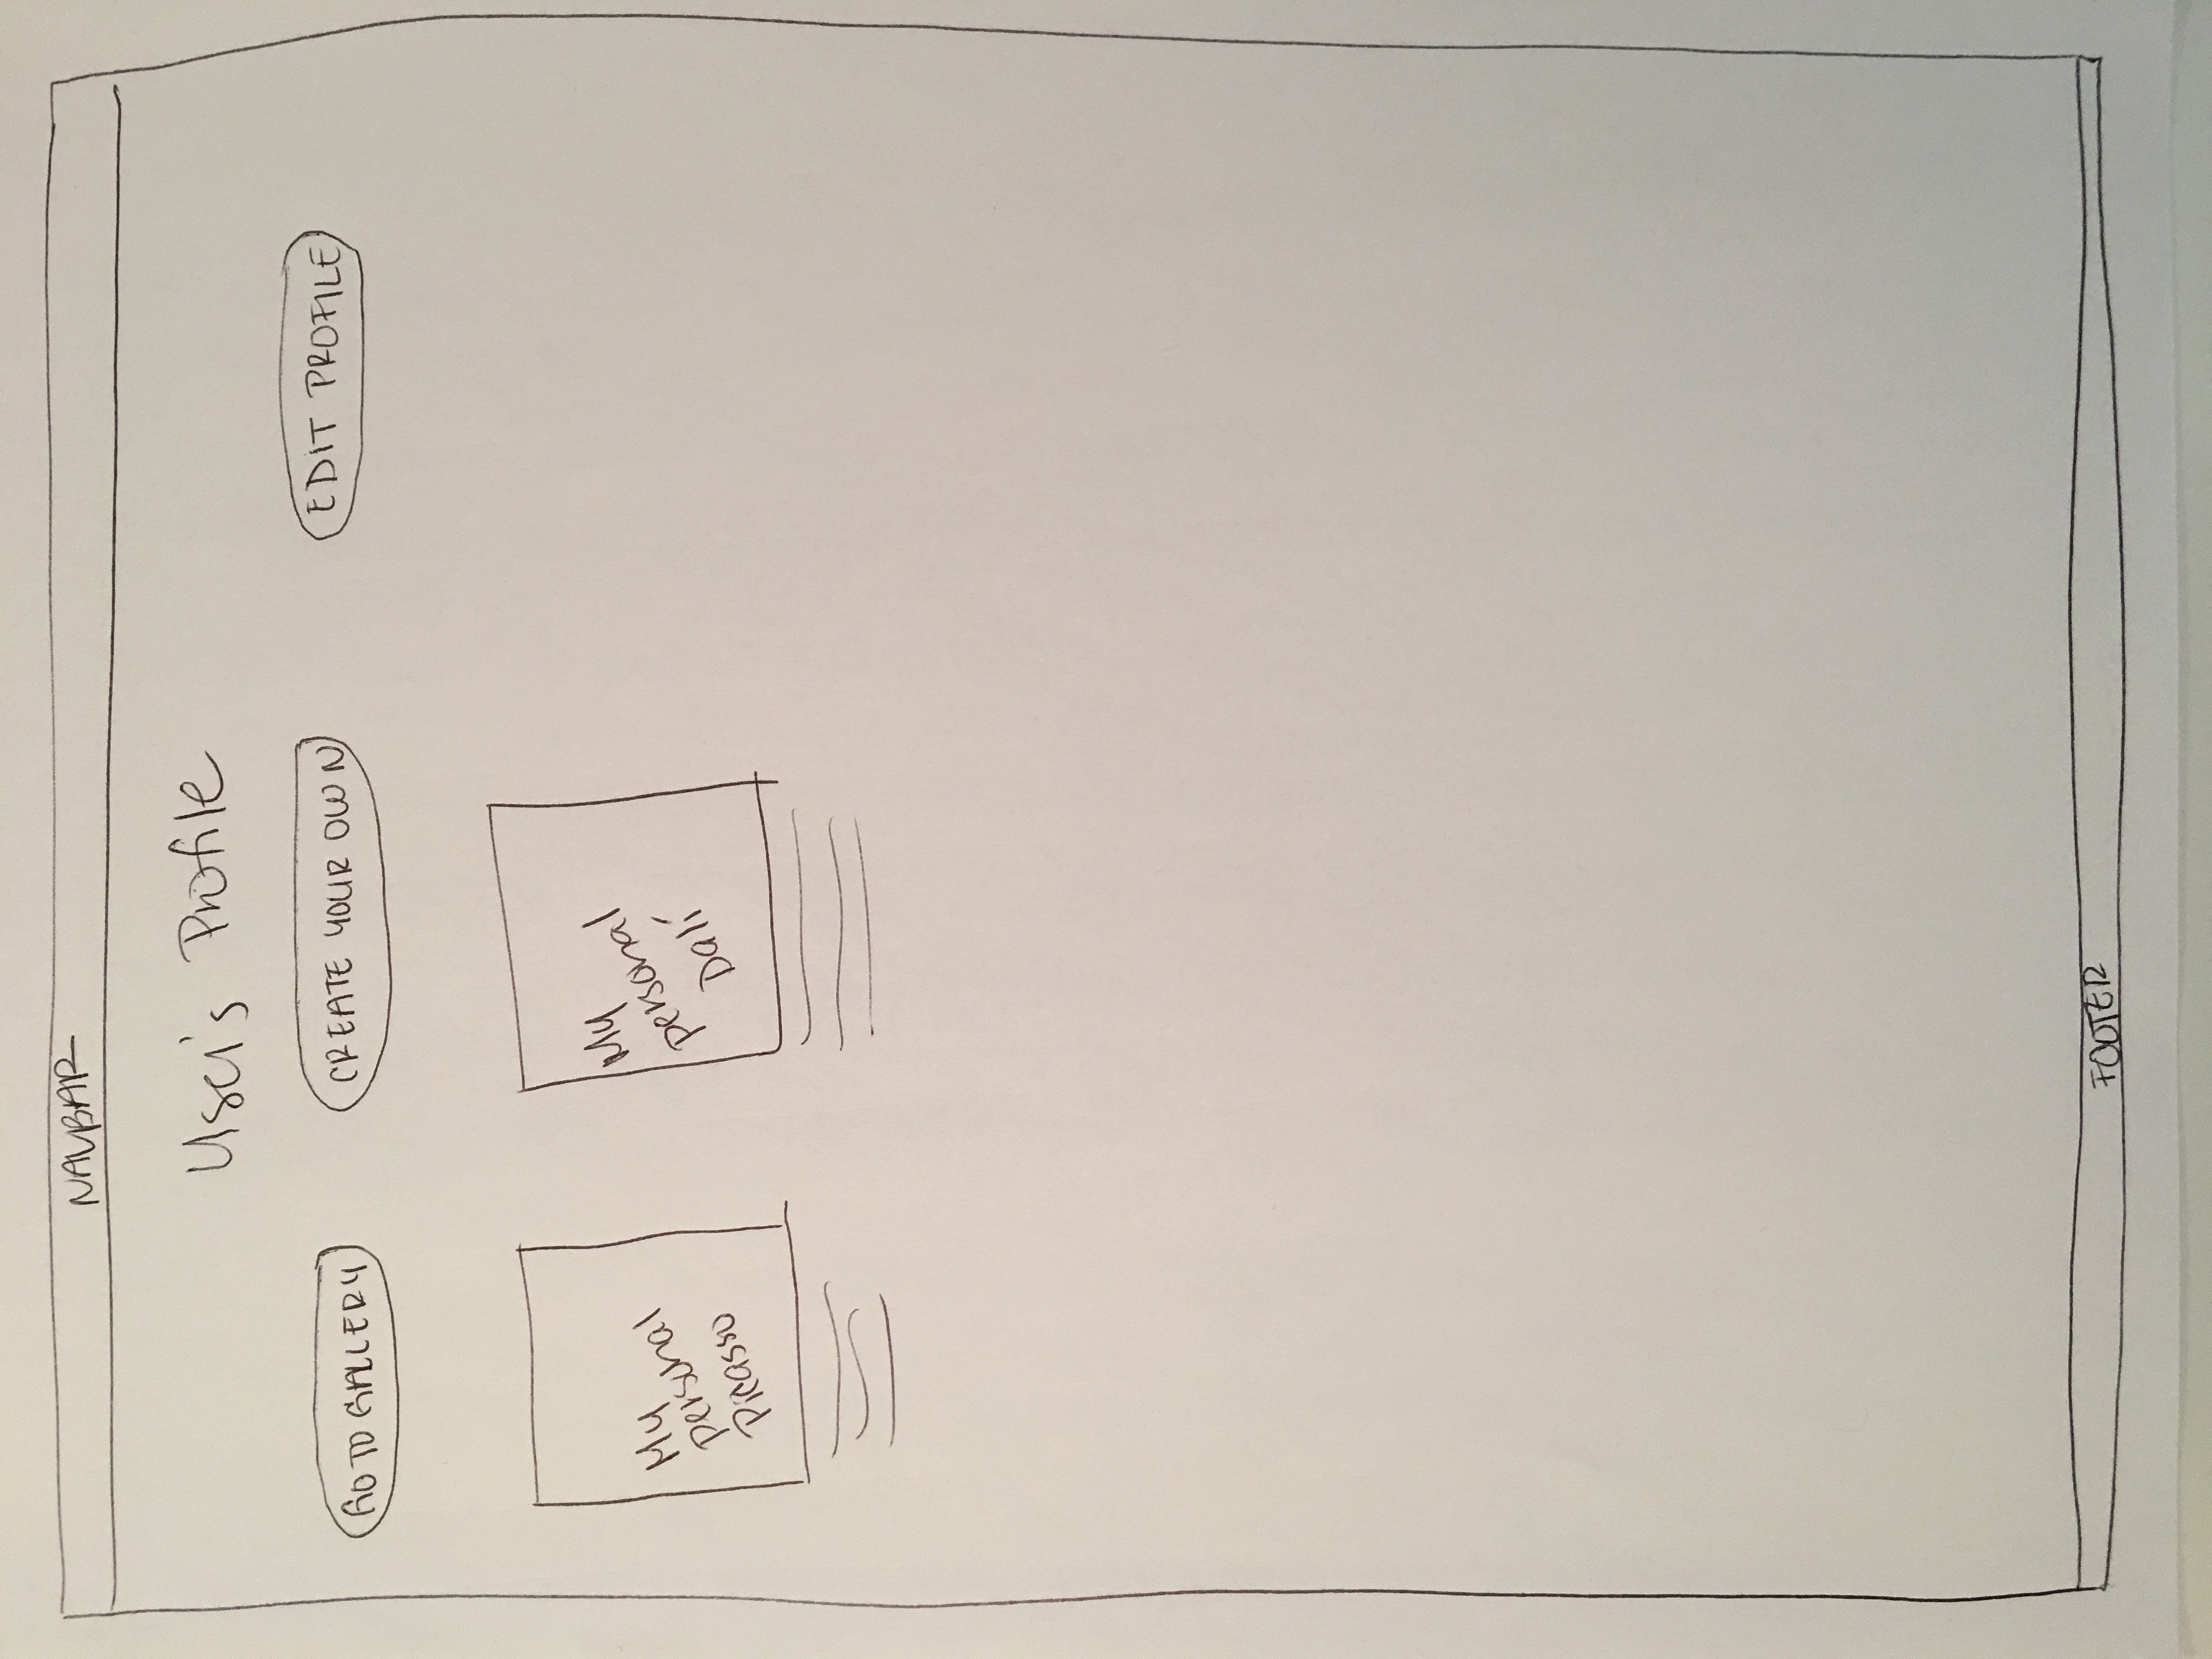 NAVBAR
User's Profile
GO TO GALLERY
CREATE YOUR OWN
EDIT PROFILE
My
personal
Picasso
My
personal
Dalí
FOOTER